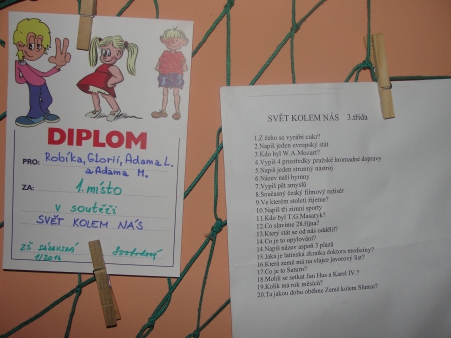 DIPLOM
PRO: Robíka, Glorii, Adama L.
a Adama H.
ZA: 1. místo
v soutěži
SVĚT KOLEM NÁS
ZŠ
1/2014
SVĚT KOLEM NÁS 3.třída
1.Z čeho se vyrábí cukr?
2.Napiš jeden evropský stát
3.Kdo byl W.A.Mozart?
4.Vypiš 4 prostředky pražské hromadné dopravy
5.Napiš jeden strunný nástroj
6.Název naší hymny
7.Vypiš pět smyslů
8.Současný český filmový režisér
9.Ve kterém století žijeme?
10.Napiš tři zimní sporty
11.Kdo byl T.G.Masaryk?
12.Co slavíme 28.října?
13.Který stát se od nás oddělil?
14.Co je to opylování?
14.Napiš název aspoň 3 plazů
15.Jaká je latinská zkratka doktora medicíny?
16.Která země má na vlajce javorový list?
17.Co je to Saturn?
18.Mohli se setkat Jan Hus a Karel IV.?
19.Kolik má rok měsíců?
20.Za jakou dobu oběhne Země kolem Slunce?